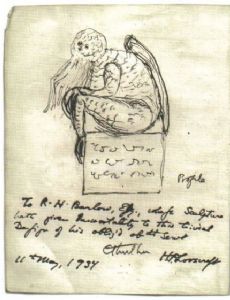 Profile
To R. H. Barlow, Esq., whoſe Sculpture
hath given Immortality to this trivial
Deſign of his oblig'd obt Servt
Cthulhu HPLovecraft
11th May, 1934